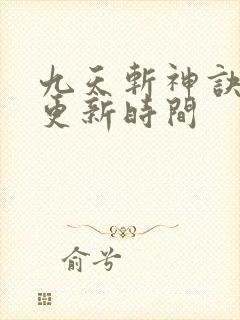 九天斬神訣
更新時間
俞兮